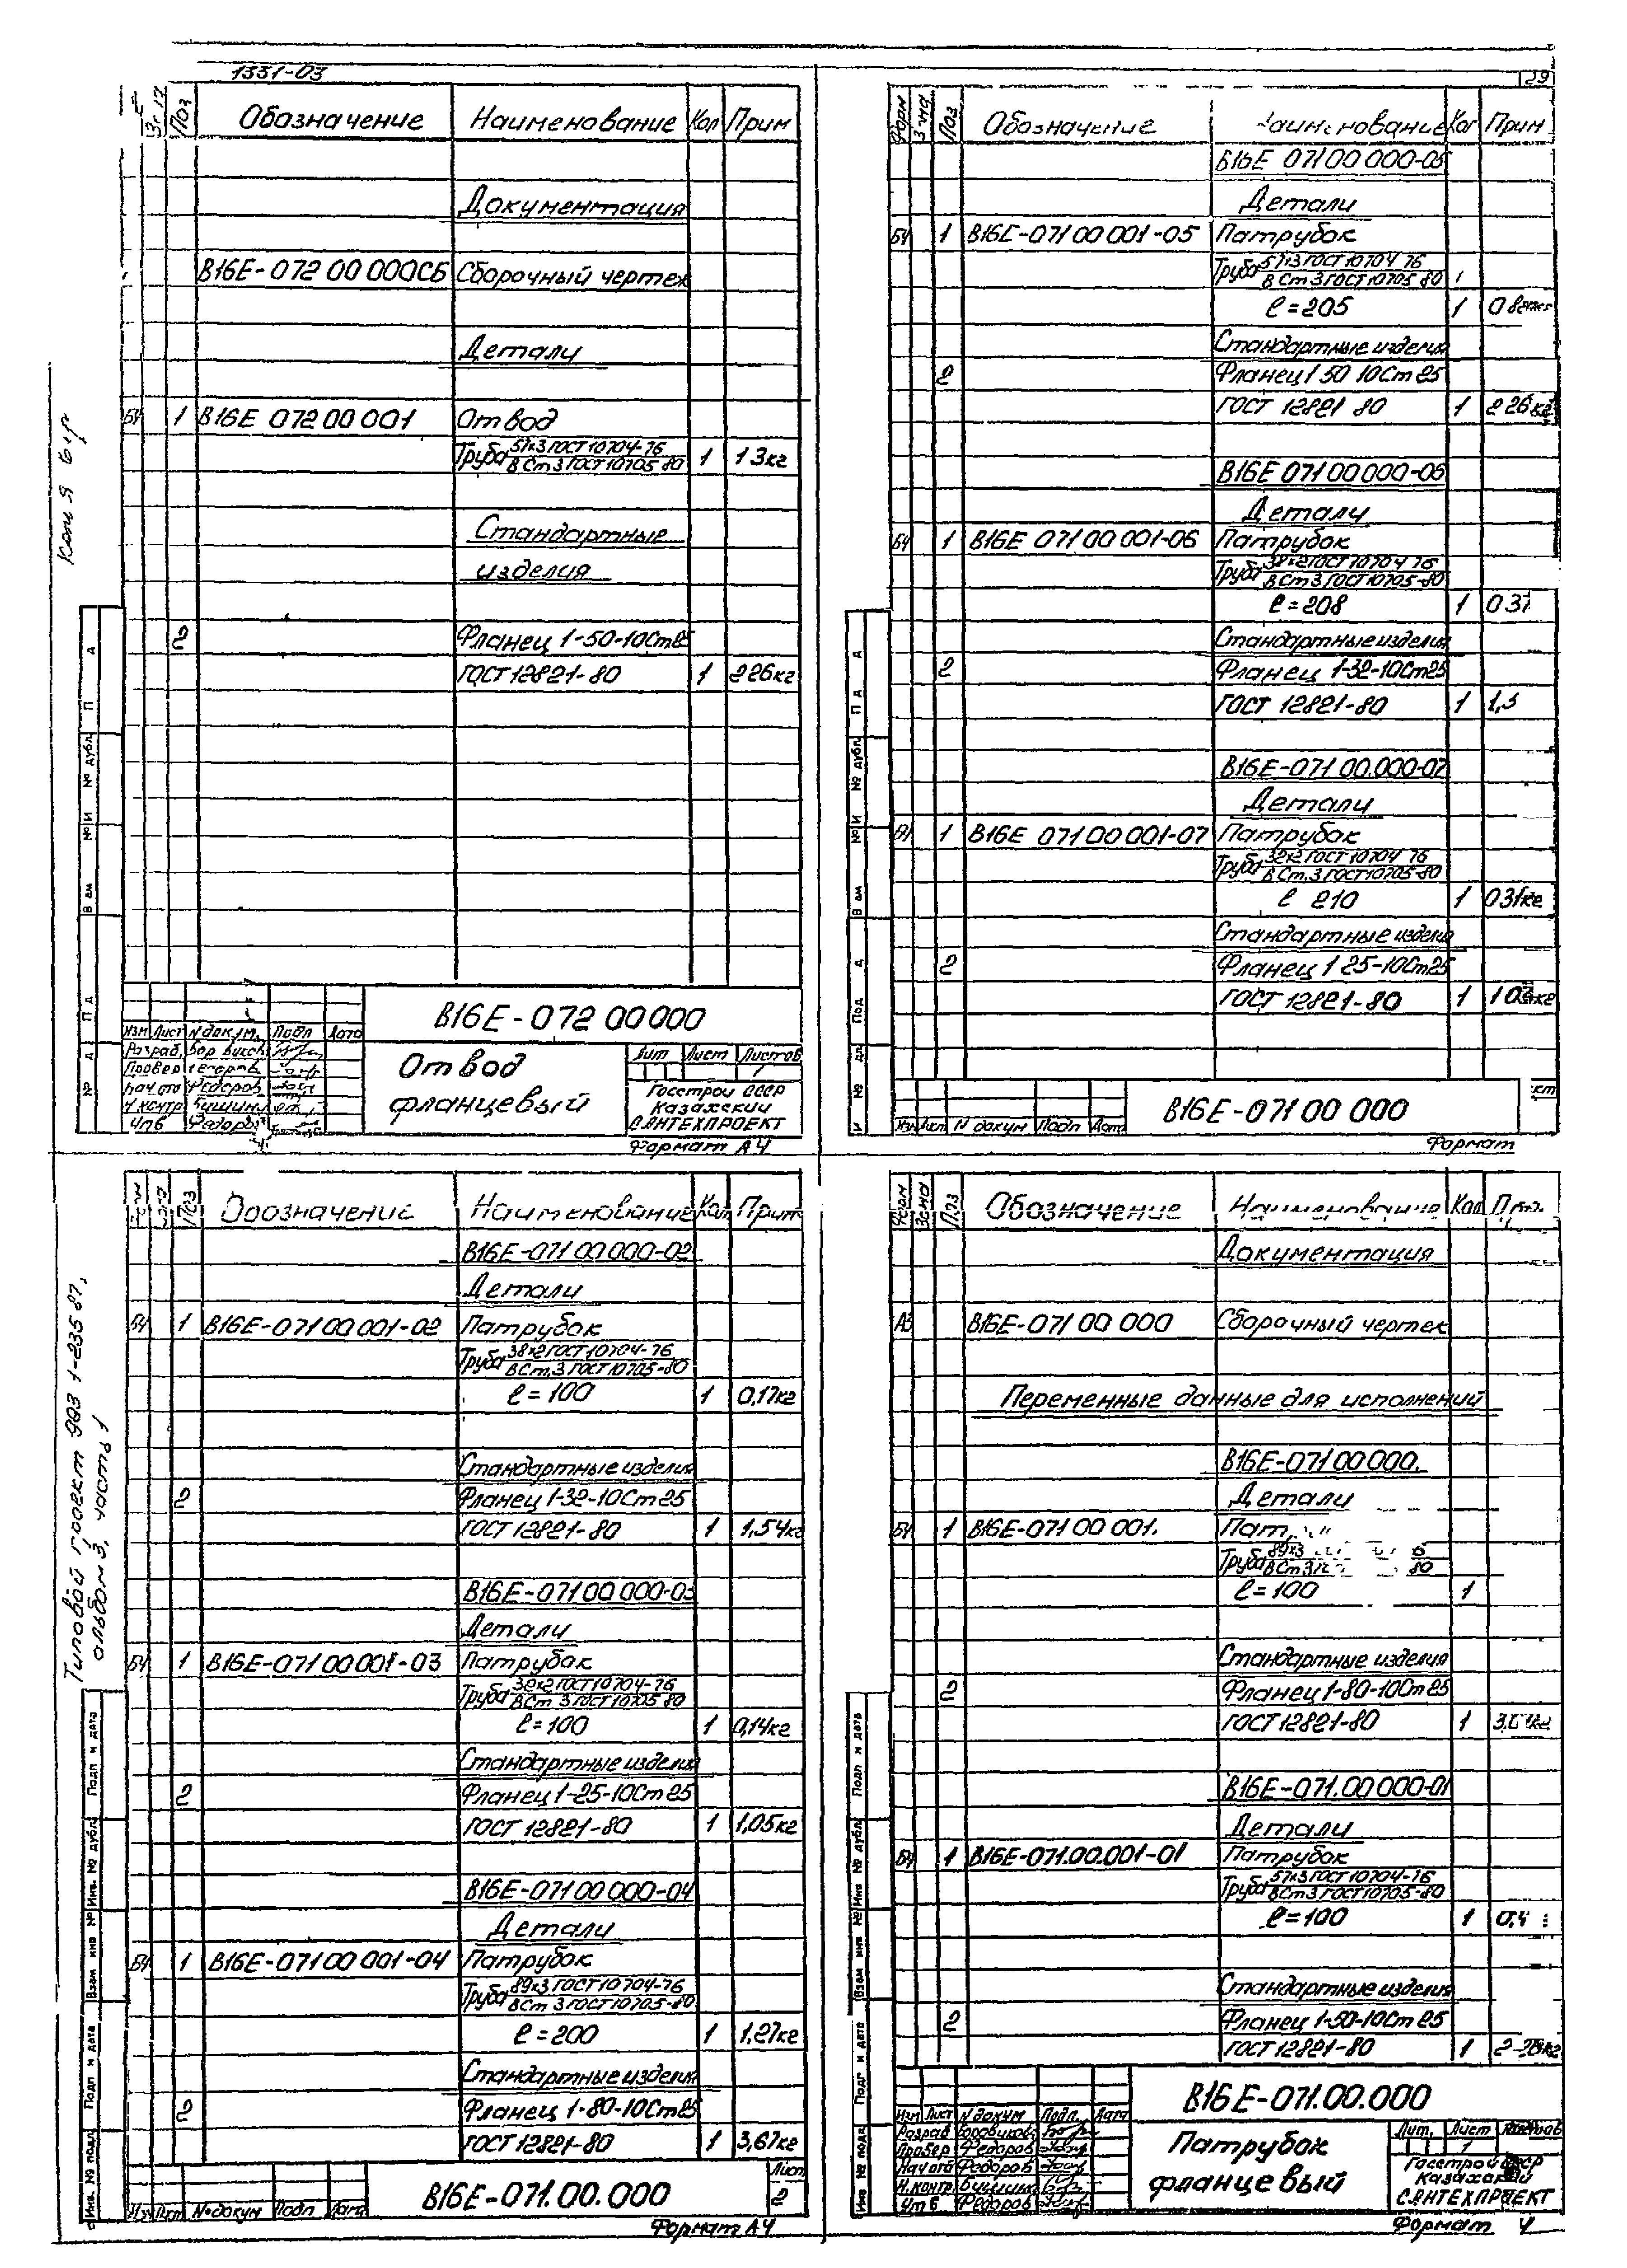 1331-03
29
Поз Обозначение Наименование Кол Прим
Документация
В16Е-072 00 000СБ Сборочный чертеж
Детали
БЧ 1 В16Е 072 00 001 Отвод
Труба 57х3 ГОСТ 10704-76
В Ст 3 ГОСТ 10705 80 1 1 3кг
Стандартные
изделия
2 Фланец 1-50-10Ст25
ГОСТ 12821-80 1 2 26кг
В16Е-072 00 000
Изм Лист N докум. Подп Дата
Разраб.
Провер
Нач отд Федоров
Н контр
Федоров
Отвод
фланцевый
Лит Лист Листов
1
Госстрой СССР
Казахский
САНТЕХПРОЕКТ
Формат А4
Форм Зона Поз Обозначение Наименование Кол Прим
В16Е 071 00 000-05
Детали
БЧ 1 В16Е-071 00 001-05 Патрубок
Труба 57х3 ГОСТ 10704 76
В Ст 3 ГОСТ 10705 80
ℓ=205 1
Стандартные изделия
2 Фланец 1 50 10Ст 25
ГОСТ 12821 80 1 2 26кг
В16Е 071 00 000-06
Детали
БЧ 1 В16Е 071 00 001-06 Патрубок
Труба 38х2 ГОСТ 10704 76
В Ст 3 ГОСТ 10705-80
ℓ=208 1 0 31
Стандартные изделия
2 Фланец 1-32-10Ст25
ГОСТ 12821-80 1 1,5
В16Е-071 00.000-07
Детали
БЧ 1 В16Е 071 00 001-07 Патрубок
Труба 32х2 ГОСТ 10704 76
В Ст.3 ГОСТ 10705-80
ℓ 210 1 0 31кг
Стандартные изделия
2 Фланец 1 25-10Ст25
ГОСТ 12821-80 1
В16Е-071 00 000
Изм Лист N докум Подп Дата
Формат
Типовой проект 903 1-235 87,
альбом 3, часть 1
Поз Обозначение Наименование Кол Прим
В16Е-071 00 000-02
Детали
БЧ 1 В16Е-071 00 001-02 Патрубок
Труба 38х2 ГОСТ 10704-76
В Ст.3 ГОСТ 10705-80
ℓ=100 1 0,17кг
Стандартные изделия
2 Фланец 1-32-10Ст 25
ГОСТ 12821-80 1 1,54кг
В16Е-071 00 000-03
Детали
БЧ 1 В16Е-071 00 001-03 Патрубок
Труба 32х2 ГОСТ 10704-76
В Ст 3 ГОСТ 10705 80
ℓ=100 1 0,14кг
Стандартные изделия
2 Фланец 1-25-10Ст 25
ГОСТ 12821-80 1 1,05кг
В16Е-071 00 000-04
Детали
БЧ 1 В16Е-071 00 001-04 Патрубок
Труба 89х3 ГОСТ 10704-76
В Ст 3 ГОСТ 10705-80
ℓ=200 1 1,27кг
Стандартные изделия
2 Фланец 1-80-10Ст25
ГОСТ 12821-80 1 3,67кг
В16Е-071.00.000
Лист
2
Изм Лист № докум Подп Дата
Формат А4
Инв. № подл Подп и дата Взам инв № Инв. № дубл Подп и дата
Форм Зона Поз Обозначение Наименование Кол
Документация
А3 В16Е-071 00 000 Сборочный чертеж
Переменные данные для исполнений
В16Е-071 00 000.
Детали
БЧ 1 В16Е-071 00 001.
Труба 89х3
80
ℓ=100 1
Стандартные изделия
2 Фланец 1-80-10Ст 25
ГОСТ 12821-80 1
В16Е-071.00 000-01
Детали
БЧ 1 В16Е-071.00.001-01 Патрубок
Труба 57х3 ГОСТ 10704-76
В Ст 3 ГОСТ 10705-80
ℓ=100 1 0,4
Стандартные изделия
2 Фланец 1-50-10Ст 25
ГОСТ 12821-80 1
В16Е-071.00.000
Изм Лист N докум Подп. Дата
Разраб
Провер Федоров
Нач отд Федоров
Н.контр
Федоров
Патрубок
фланцевый
Лит. Лист
1
Госстрой СССР
Казахский
САНТЕХПРОЕКТ
Формат 4
Инв № подл Подп и дата Взам инв № Инв № дубл Подп и дата